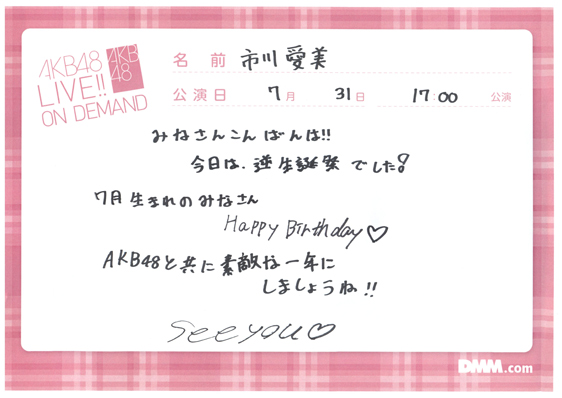 AKB48
LIVE!!
ON DEMAND
AKB
48
名 前 市川愛美
公演日 7月 31日 17:00 公演
みなさんこんばんは!!
今日は、逆生誕祭でした!
7月生まれのみなさん
Happy Birthday♡
AKB48と共に素敵な一年に
しましょうね!!
see you♡
DMM.com